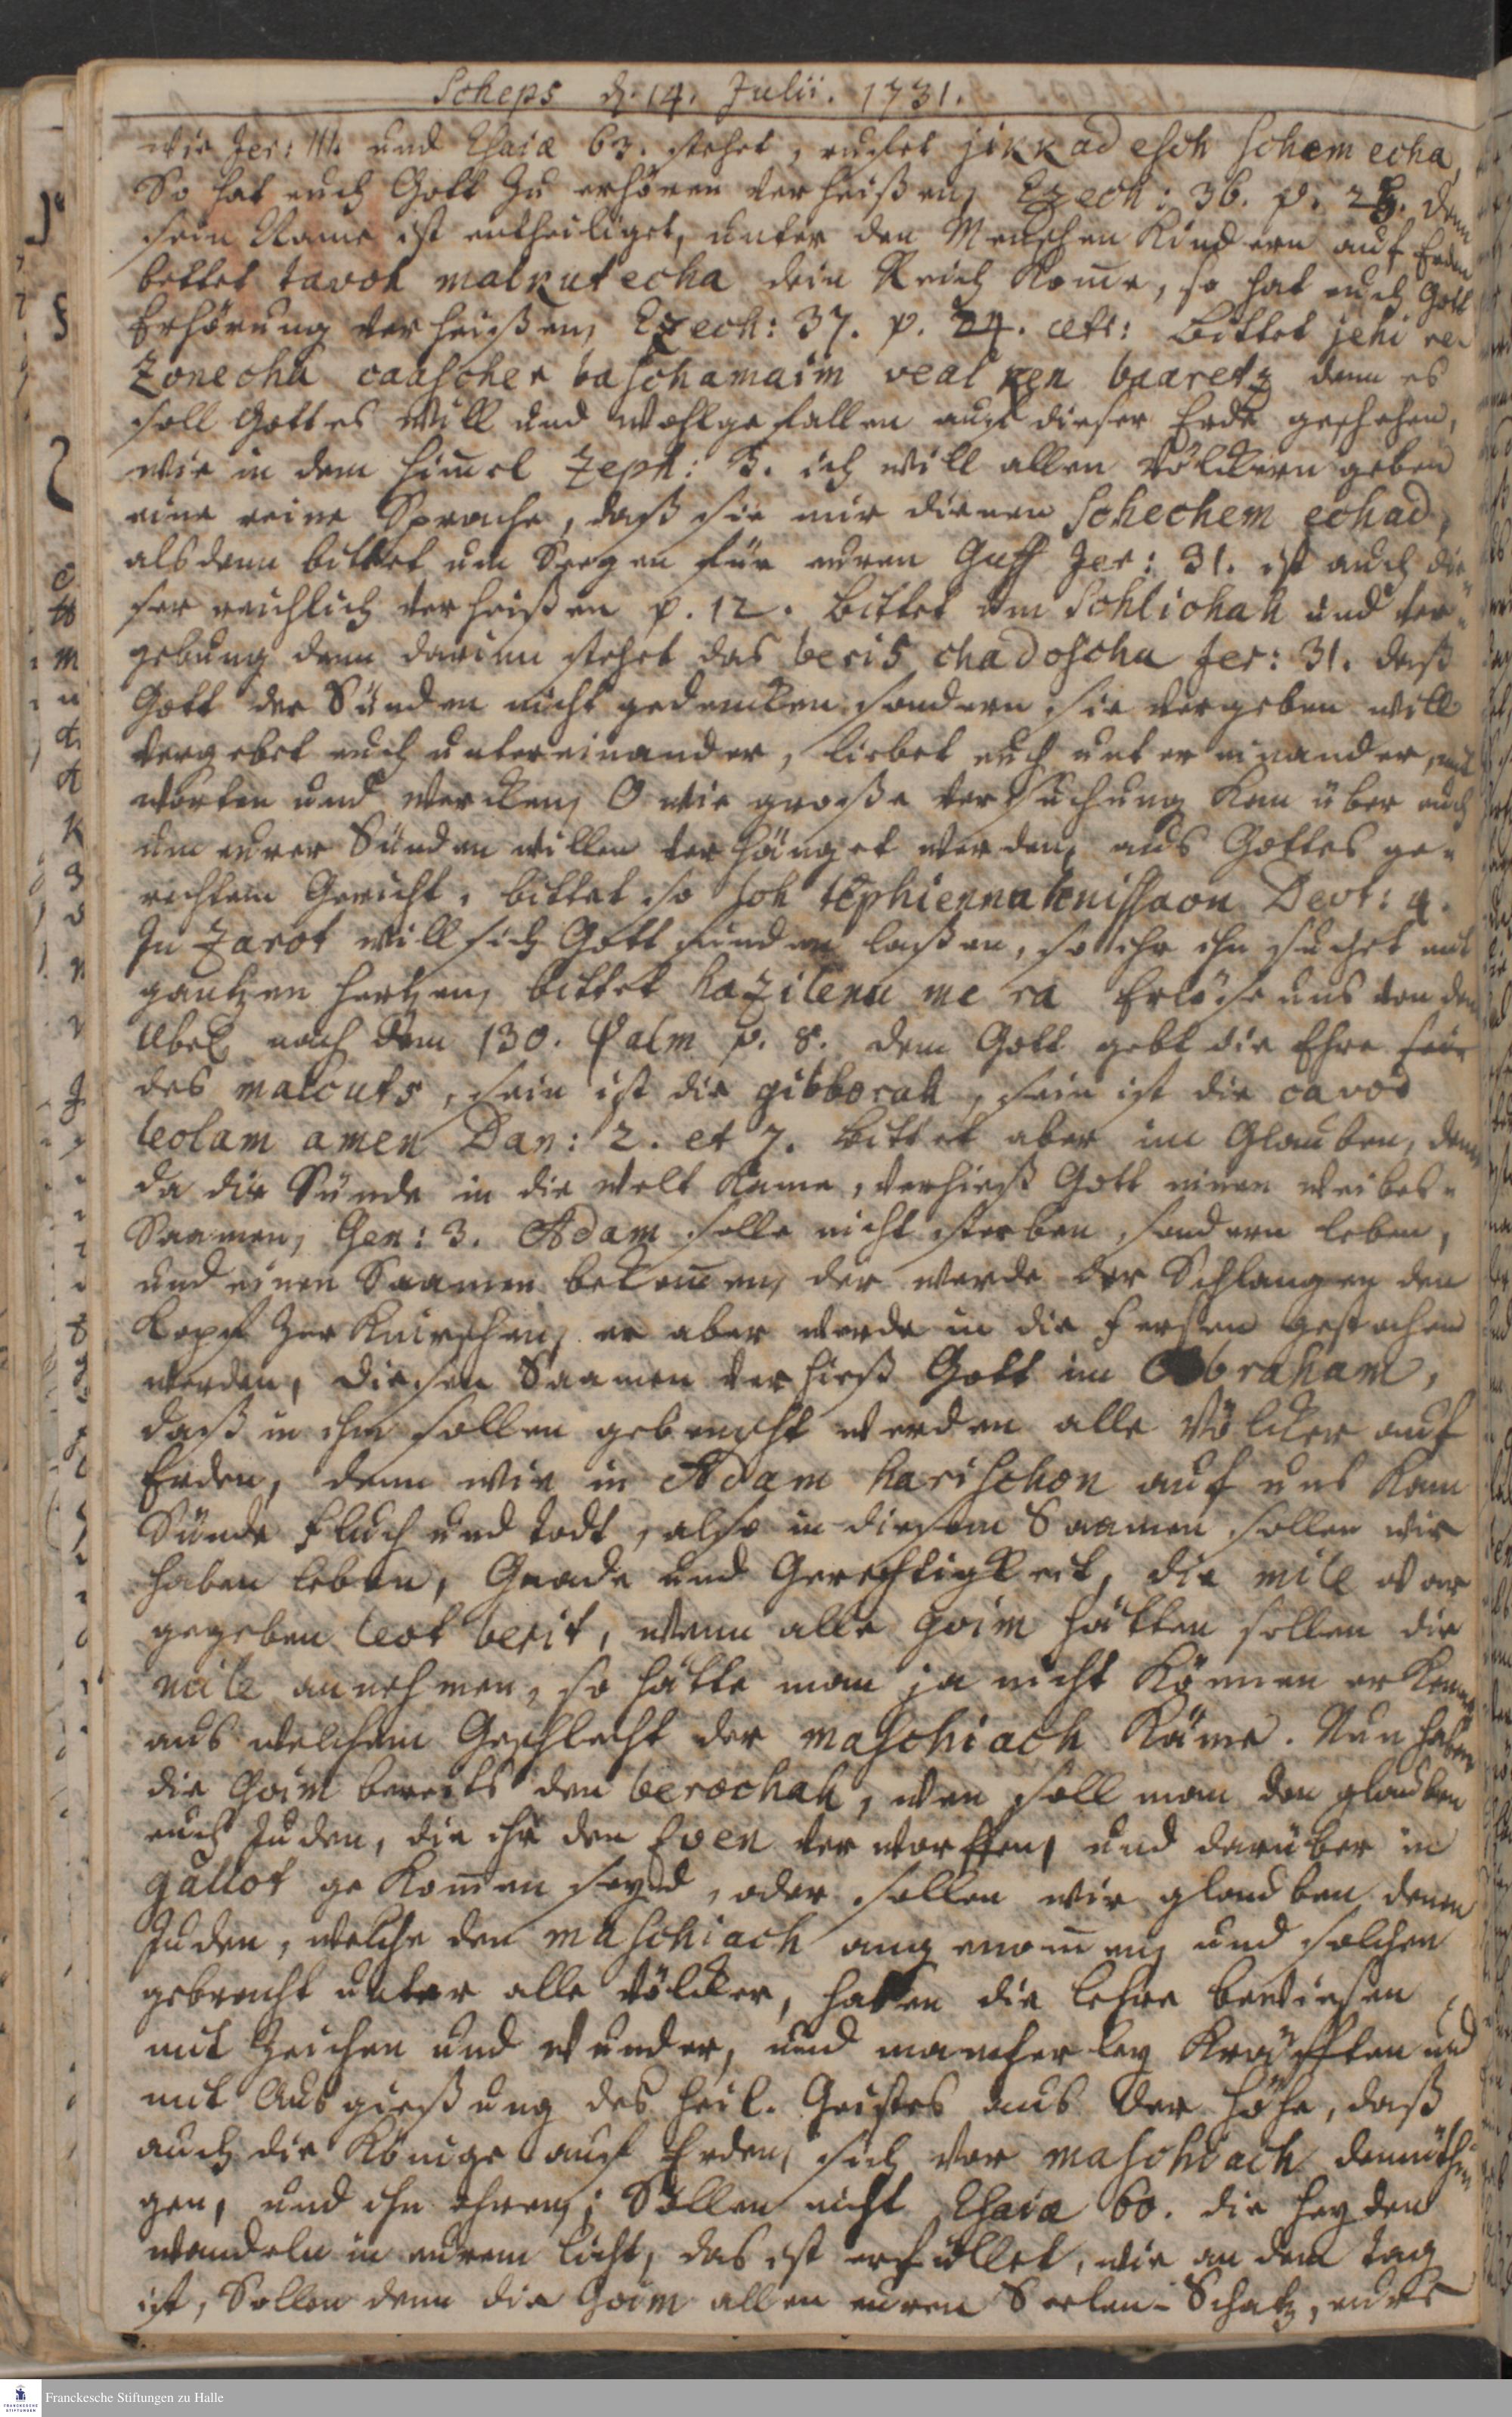 Scheps d. 14. Julii. 1731.
wie Jer: III. und Esaiæ 63. stehet, rufet jikkadesch schemecha,
So hat euch Gott zu erhören verheißen, Ezech: 36. p. 23. denn
sein Name ist entheiliget, unter den Menschen Kindern auf Erden
bettet tavot malkutecha dein Reich kome, so hat euch Gott
Erhörung verheißen, Ezech: 37. p. 24. cets: Bittet jehi re-
zonecha caascher baschamaim veal ken baaretz denn es
soll Gottes Will und Wohlgefallen auf dieser Erde geschehen,
wie in dem Himel Zeph: 3. ich will allen Völckern geben
eine reine Sprache, daß sie mir dienen Schechem echad,
alsdenn bittet um Seegen für euren Guff Jer: 31. ist auch die-
ser reichlich verheißen p. 12. Bittet um Schlichah und Ver-
gebung denn darinn stehet das beris chadoscha Jer: 31. daß
Gott der Sünden nicht gedencken sondern sie vergeben will
vergebet euch untereinander, liebet euch untereinander, mit
worten und wercken, O wie große Versuchung kan über euch
um eurer Sünden willen verhänget werden, aus Gottes ge-
rechtem Gericht, bittet so loh Deot: 4.
In Zarot will sich Gott finden laßen, so ihr ihn suchet mit
gantzen Hertzen, bittet hazilenu me ra Erlöse uns von dem
Übel nach dem 130. Psalm p. 8. dem Gott gebt die Ehre
des malcuts, sein ist die gibborah, sein ist die cavod
leolam amen Dan: 2. et 7. Bittet aber im Glauben, denn
da die Sünde in die Welt kame, verhieß Gott einen Weibes-
Saamen, Gen: 3. Adam solle nicht sterben, sondern leben,
und einen Saamen bekomen, der werde der Schlangen den
Kopf zerknirschen, er aber werde in die Fersen gestochen
werden, diesen Saamen verhieß Gott im Abraham,
daß in ihm sollen gebenscht werden alle Völcker auf
Erden, denn wie in Adam harischon auf uns kam
Sünde Fluch und Todt, also in diesem Saamen sollen wir
haben Leben, Gnade und Gerechtigkeit, die mile war
gegeben leot berit, wenn alle Goim hätten sollen die
mile annehmen, so hätte man ja nicht können erkennen
aus welchem Geschlecht der maschiach käme. Nun haben
die Goim bereits den berochah, wen soll man den glauben
euch Juden, die ihr den Even verworffen, und darüber in
gallot gekomen seyd, oder sollen wir glauben denen
Juden, welche den maschiach angenomen, und solchen
gebracht unter alle Völcker, haben die Lehre bewiesen
mit Zeichen und Wunder, und mancherley Kräfften und
mit Ausgießung des Heil. Geistes aus der Höhe, daß
auch die Könige auf Erden, sich vor maschiach demüthi-
gen, und ihn ehren; Sollen nicht Esaiæ 60. die Heyden
wandeln in eurem Licht, das ist erfüllet, wie an dem Tag
ist, Sollen denn die Goim allen euren Seelen-Schatz, eures
Franckesche Stiftungen zu Halle